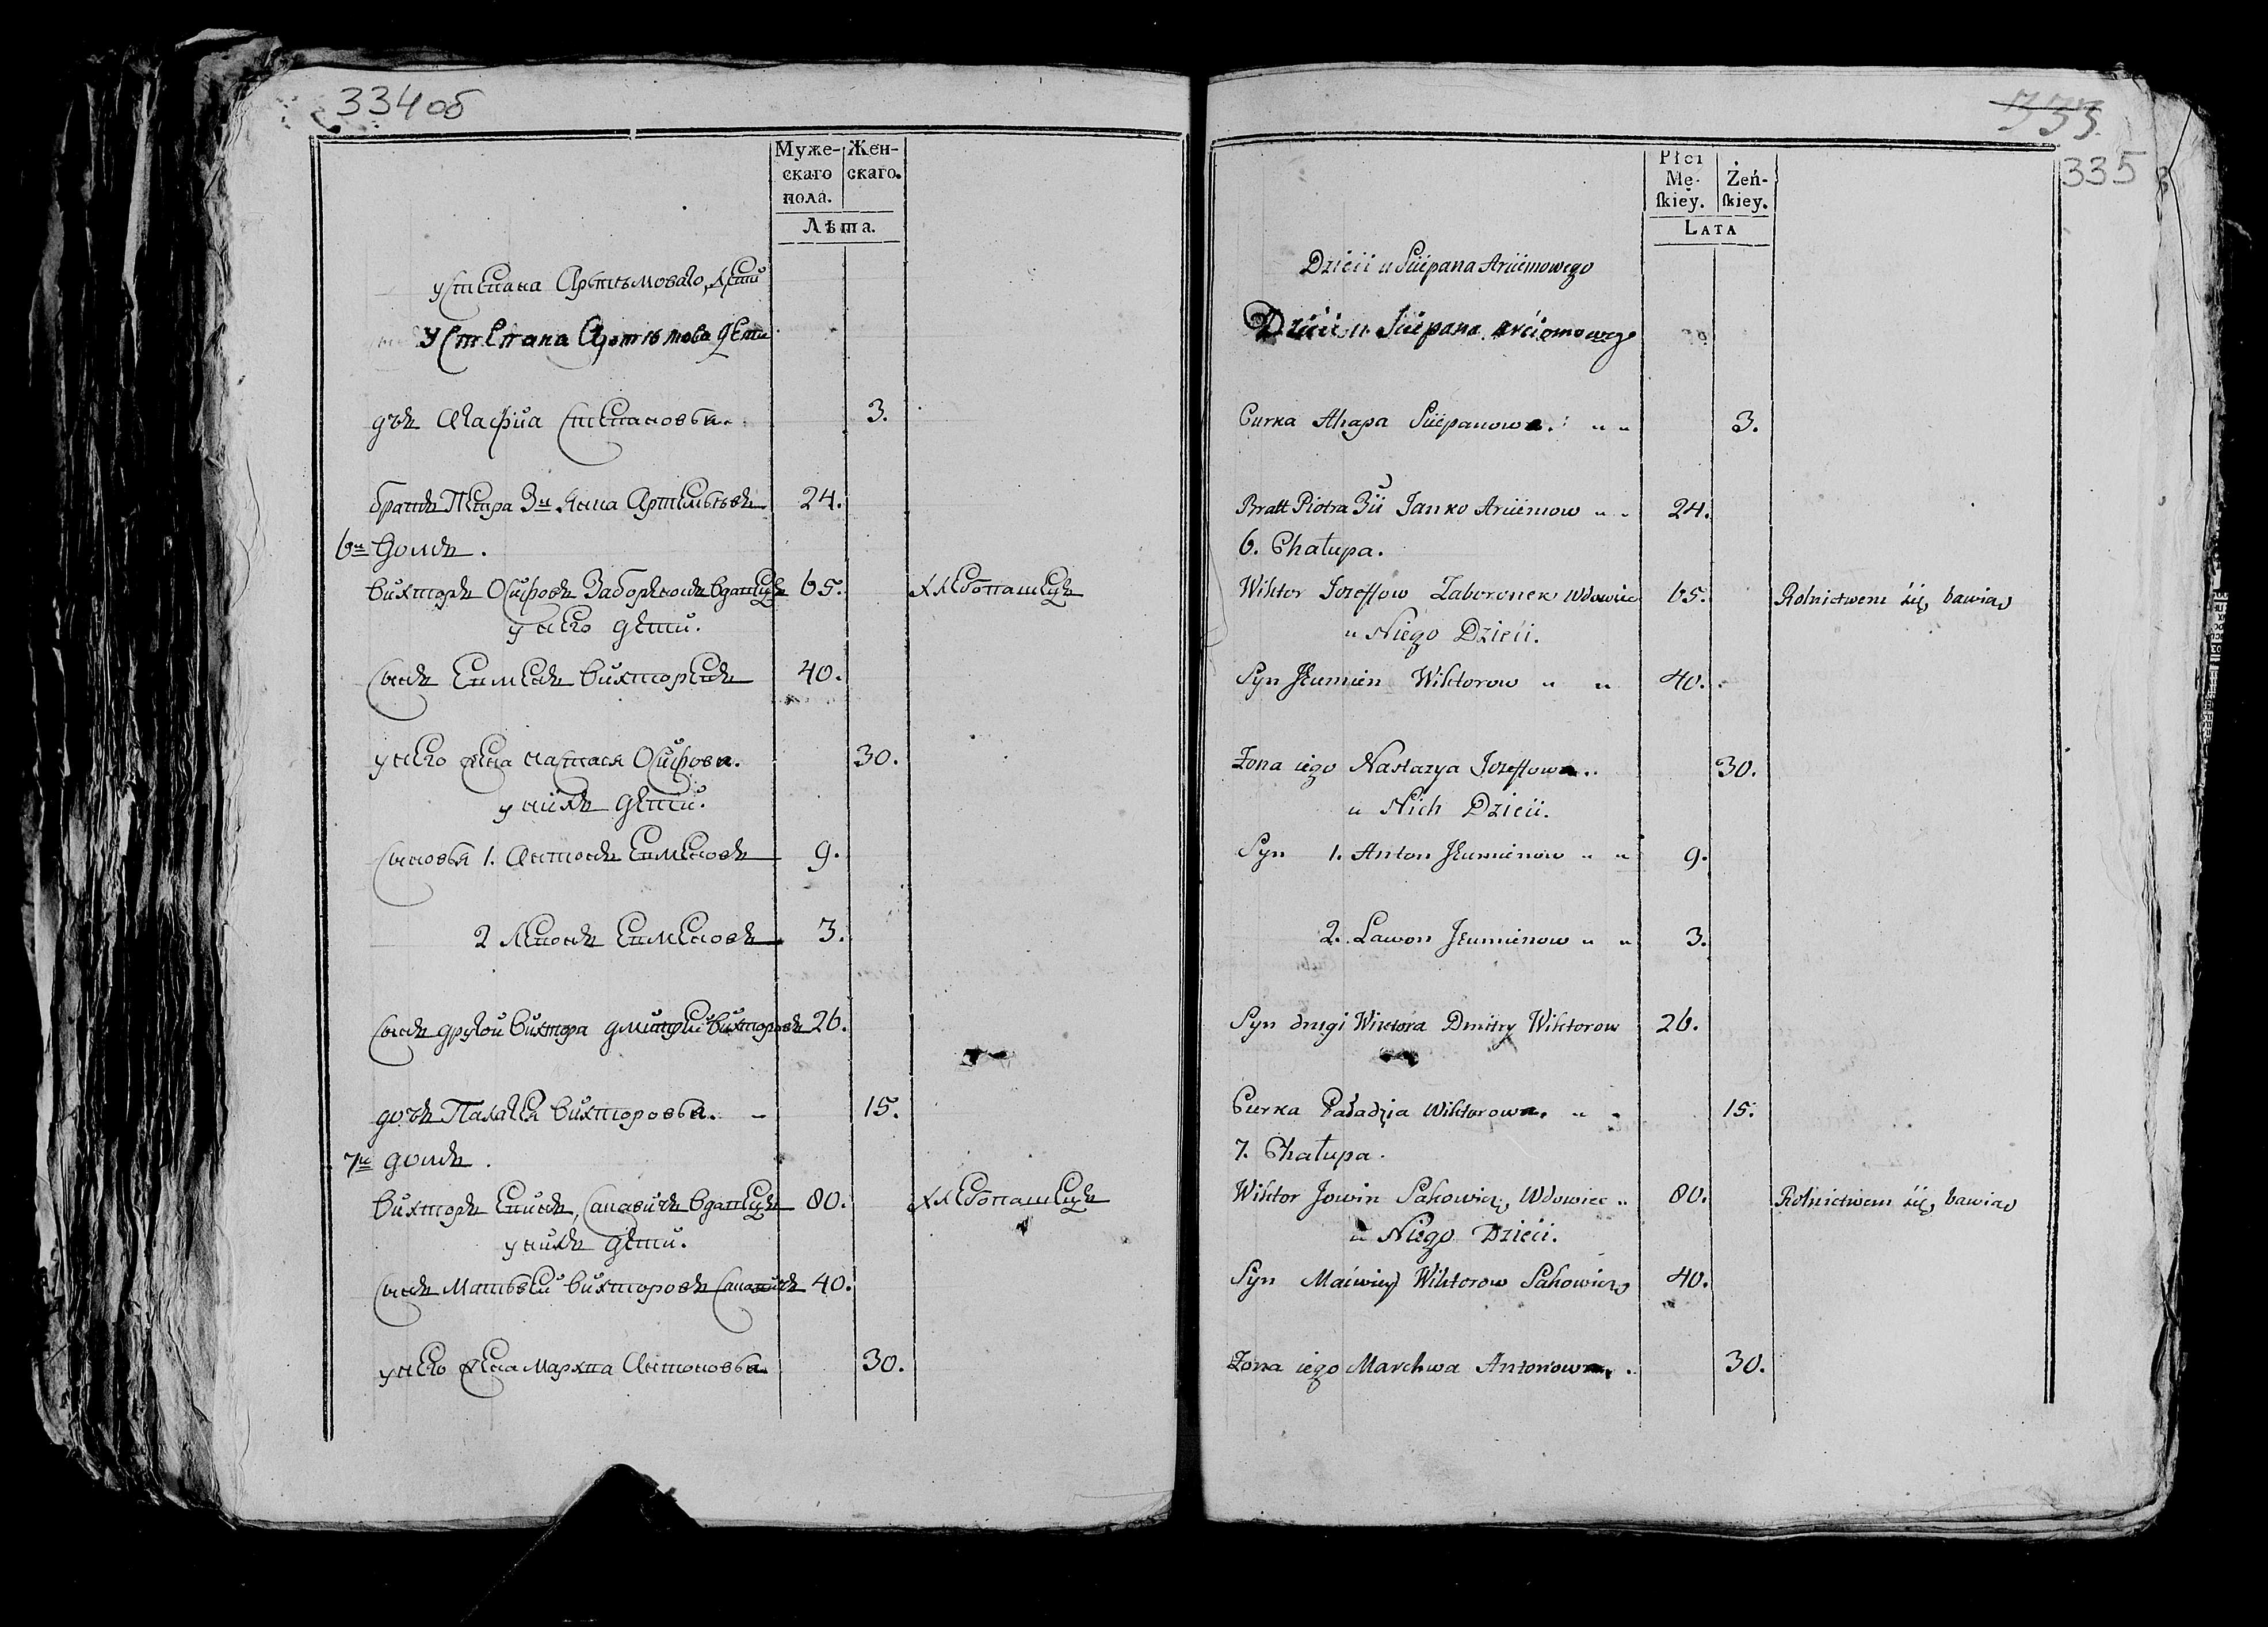 334 об
Муже-
скаго
пола.
Жен-
скаго.
Лѣта.
у Степана Артѣмоваго, дети
У Степана Артѣмова дети
дчъ Агафиа Степановна. 3.
братъ Петра 3й Янка Артемьевъ 24.
6й домъ.
Вихторъ Осифовъ Заборенокъ вдовецъ 65. хлебопашецъ
у него дети.
сынъ Вихторевъ 40.
у него жена Настася Осифовна. 30.
у нихъ дети.
сыновья 1. Антонъ 9.
2 3.
сынъ другой Вихтора Дмитрей Вихторовъ 26.
дочь Палагея Вихторовна. 15.
7й домъ.
Вихторъ вдовецъ 80. хлебопашецъ
у нихъ дети.
сынъ Матвей Вихторовъ 40.
у него жена Мархта Антоновна 30.
335
335
Płci
Mę-
ſkiey.
Żeń-
ſkiey.
LATA
Dzieci u Sciepana Arciemowego
Dzieci u Sciepana Arciomowego
Curka Ahapa Sciepanowa. 3.
Bratt Piotra 3ci Janko Arciemow 24.
6. Chałupa.
Wiktor Jozeffow Zaboronek Wdowiec 65. Rolnictwem się bawiąc
u Niego Dzieci.
Syn Jhumien Wiktorow 40.
Żona iego Nastazya Jozeffowa. 30.
u Nich Dzieci.
Syn 1. Anton Jhumienow 9.
2. Lawon Jhumienow 3.
Syn drugi Wiktora Dmitry Wiktorow 26.
Curka Paładzia Wiktorowa. 15.
7. Chałupa.
Wiktor Jowin Sakowicz, Wdowiec 80. Rolnictwem się bawiąc
u Niego Dzieci.
Syn Maciwiey Wiktorow Sakowicz 40.
Żona iego Marchwa Antonowa. 30.